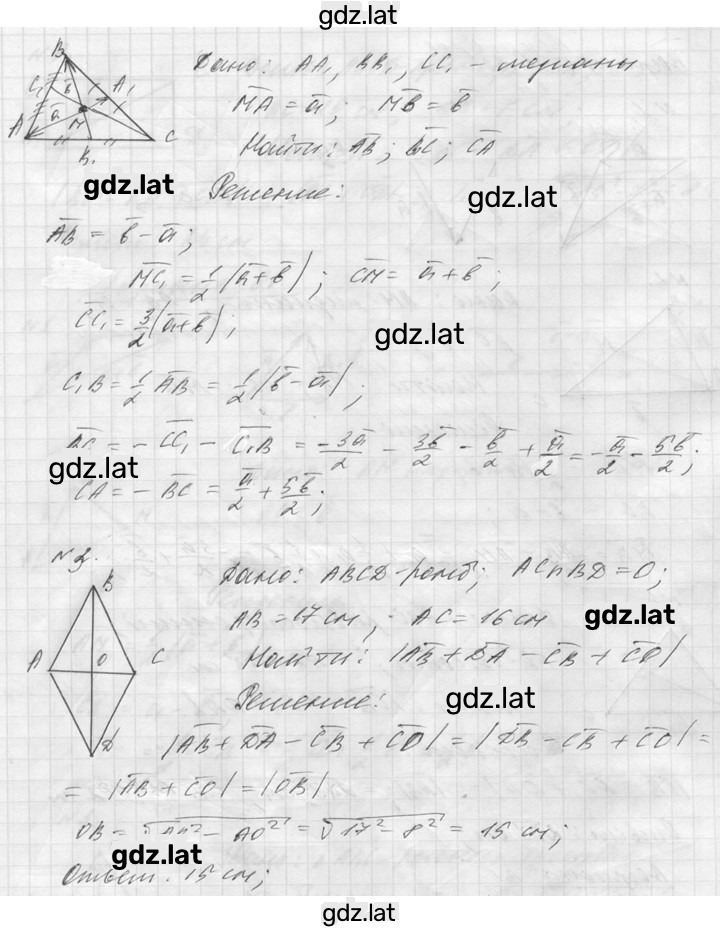 gdz.lat
B
C₁ b̄ A₁
ā
A M C
B₁
Дано: AA₁, BB₁, CC₁ - медианы
M̄Ā = ā; M̄B̄ = b̄
Найти: ĀB̄; B̄C̄; C̄Ā
gdz.lat
gdz.lat
Решение:
ĀB̄ = b̄ - ā;
M̄C̄₁ = 1/2 (ā + b̄); C̄M̄ = ā + b̄;
C̄C̄₁ = 3/2 (ā + b̄);
gdz.lat
C₁B = 1/2 ĀB̄ = 1/2 (b̄ - ā);
= - C̄C̄₁ - C̄₁B̄ = -3ā/2 - 3b̄/2 - b̄/2 + ā/2 = -ā/2 - 5b̄/2;
gdz.lat
CA = - B̄C̄ = ā/2 + 5b̄/2;
N 3.
B
A O C
D
Дано: ABCD - ромб; AC∩BD = O;
AB = 17 см; AC = 16 см
gdz.lat
Найти: |ĀB̄ + D̄Ā - C̄B̄ + C̄Ō|
Решение:
gdz.lat
|ĀB̄ + D̄Ā - C̄B̄ + C̄Ō| = |D̄B̄ - C̄B̄ + C̄Ō| =
= |ĀB̄ + C̄Ō| = |ŌB̄|
OB = √ - AO² = √17² - 8² = 15 см;
gdz.lat
Ответ: 15 см;
gdz.lat